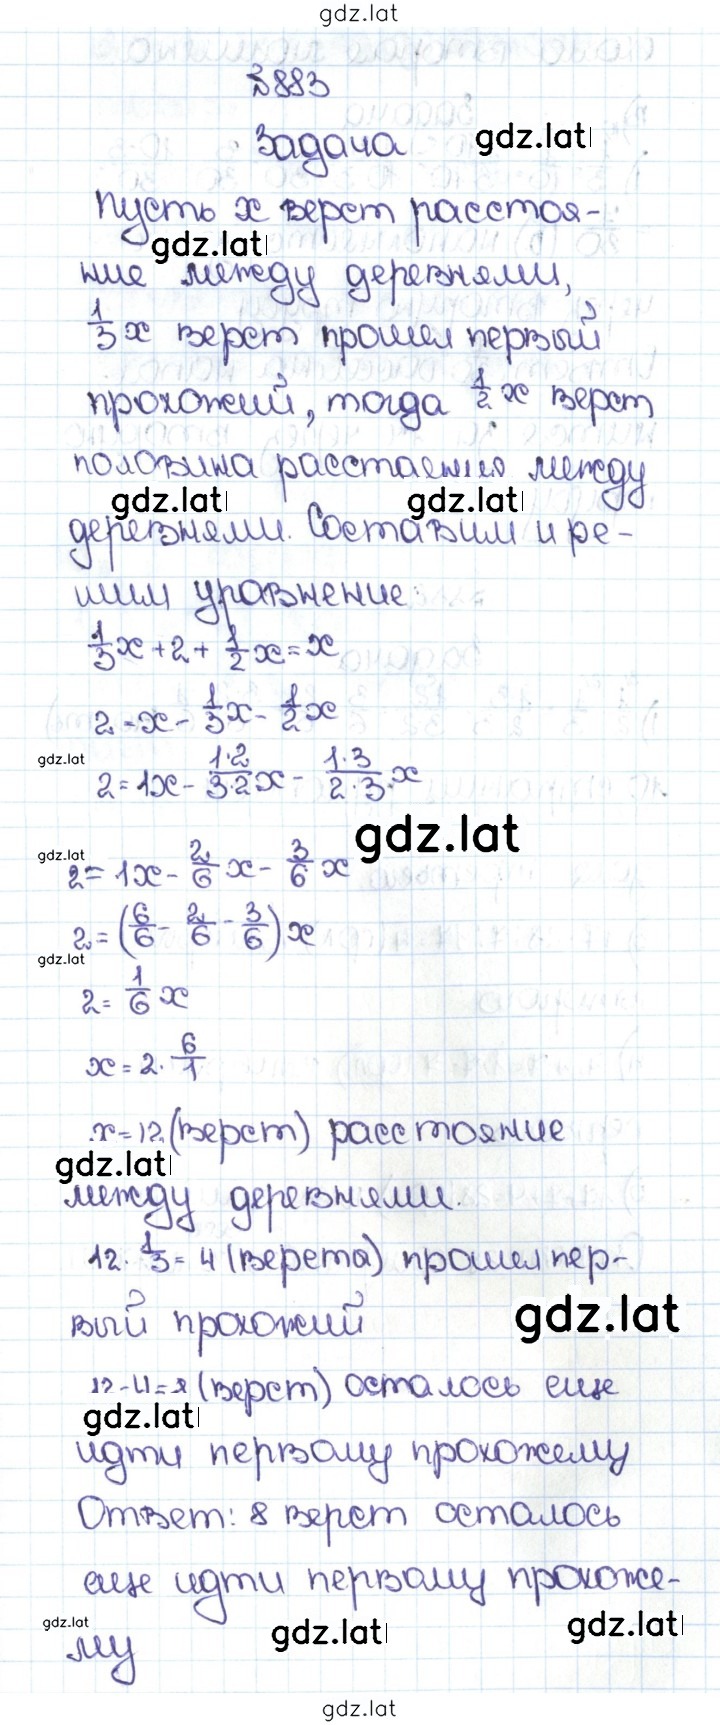 gdz.lat
№883
Задача gdz.lat
Пусть x верст расстоя-
gdz.lat
ние между деревнями,
1/3 x верст прошел первый
прохожий, тогда 1/2 x верст
половина расстаения между
gdz.lat gdz.lat
деревнями. Составим и ре-
шим уравнение
1/3 x + 2 + 1/2 x = x
2 = x - 1/3 x - 1/2 x
gdz.lat
2 = 1x - 1·2/3·2 x - 1·3/2·3 x
gdz.lat
gdz.lat
2 = 1x - 2/6 x - 3/6 x
2 = (6/6 - 2/6 - 3/6) x
gdz.lat
2 = 1/6 x
x = 2 · 6/1
x = 12 (верст) расстояние
gdz.lat
между деревнями.
12 · 1/3 = 4 (верста) прошел пер-
gdz.lat
вый прохожий
12 - 4 = 8 (верст) осталось еще
gdz.lat
идти первому прохожему
Ответ: 8 верст осталось
еще идти первому прохоже-
gdz.lat gdz.lat gdz.lat
му
gdz.lat